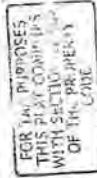 FOR THE PURPOSES
THIS PLAT COMPLIES
WITH SECTION
OF THE PROPERTY
CODE